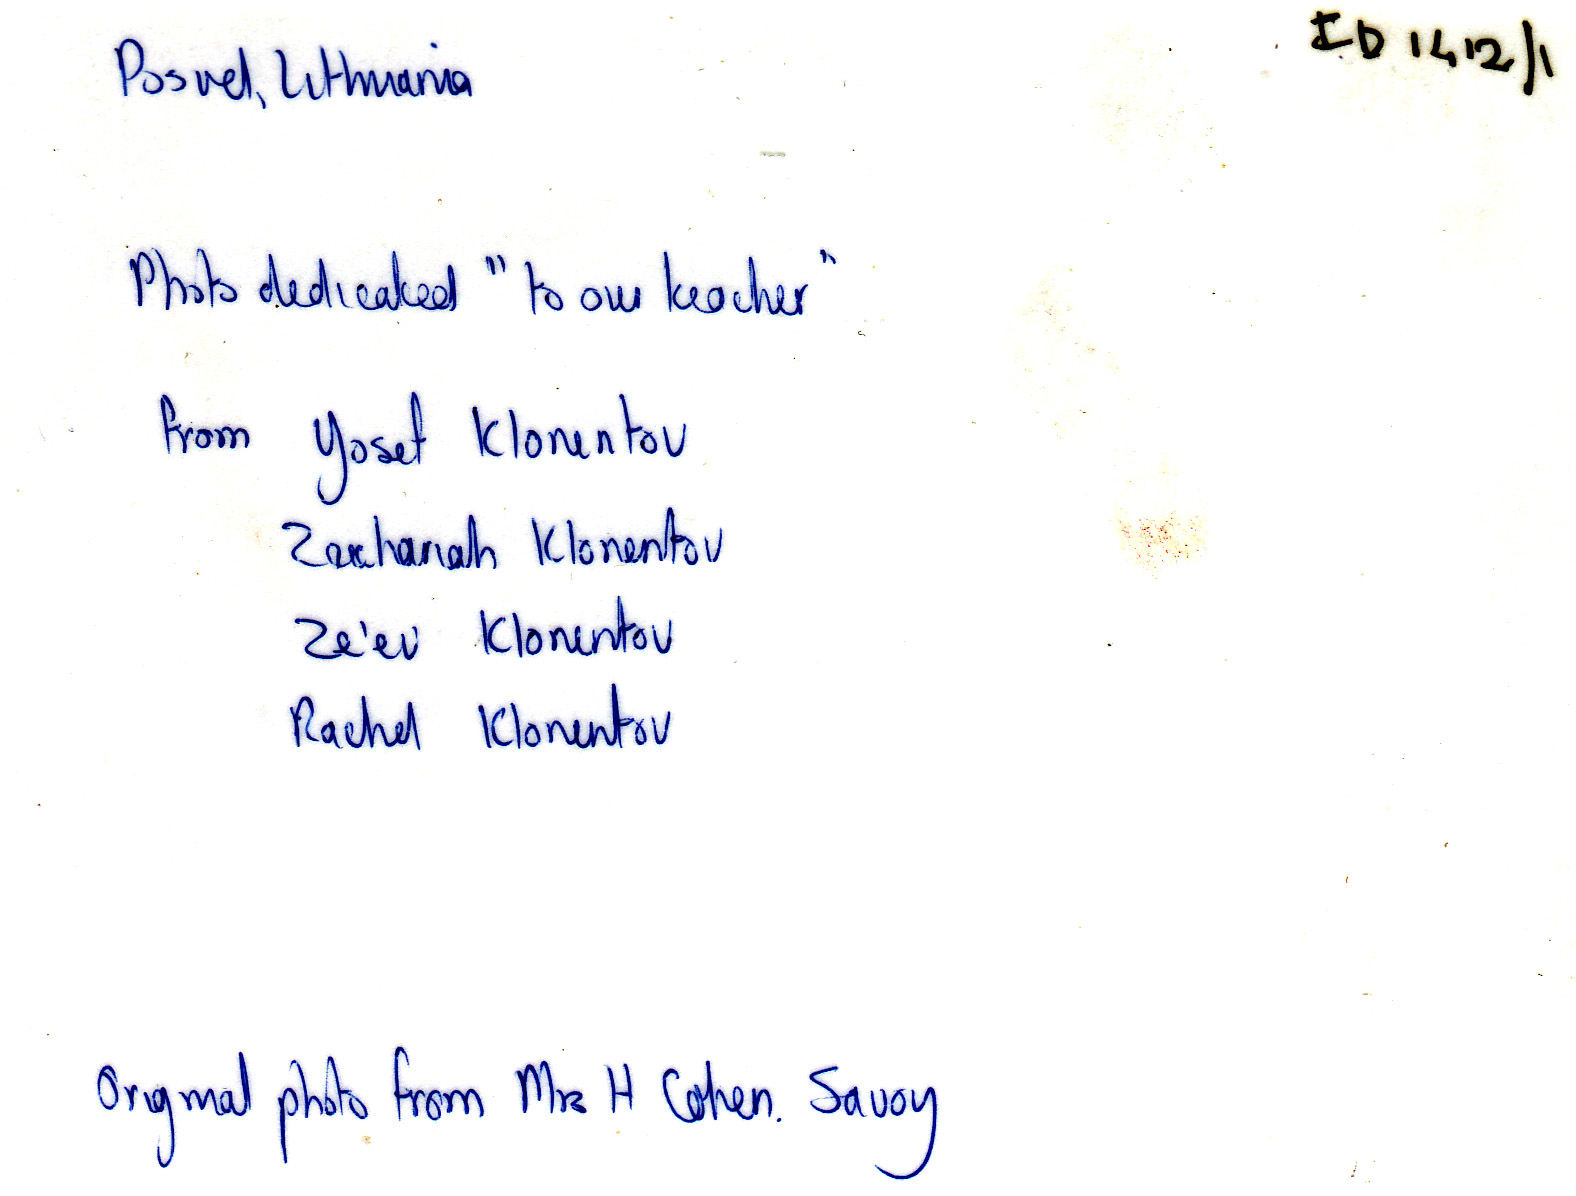 ID 1412/1
Posvel, Lithuania
Photo dedicated "to our teacher"
from Yosef Klonentov
Zachariah Klonentov
Ze'ev Klonentov
Rachel Klonentov
Original photo from Mrs H Cohen. Savoy